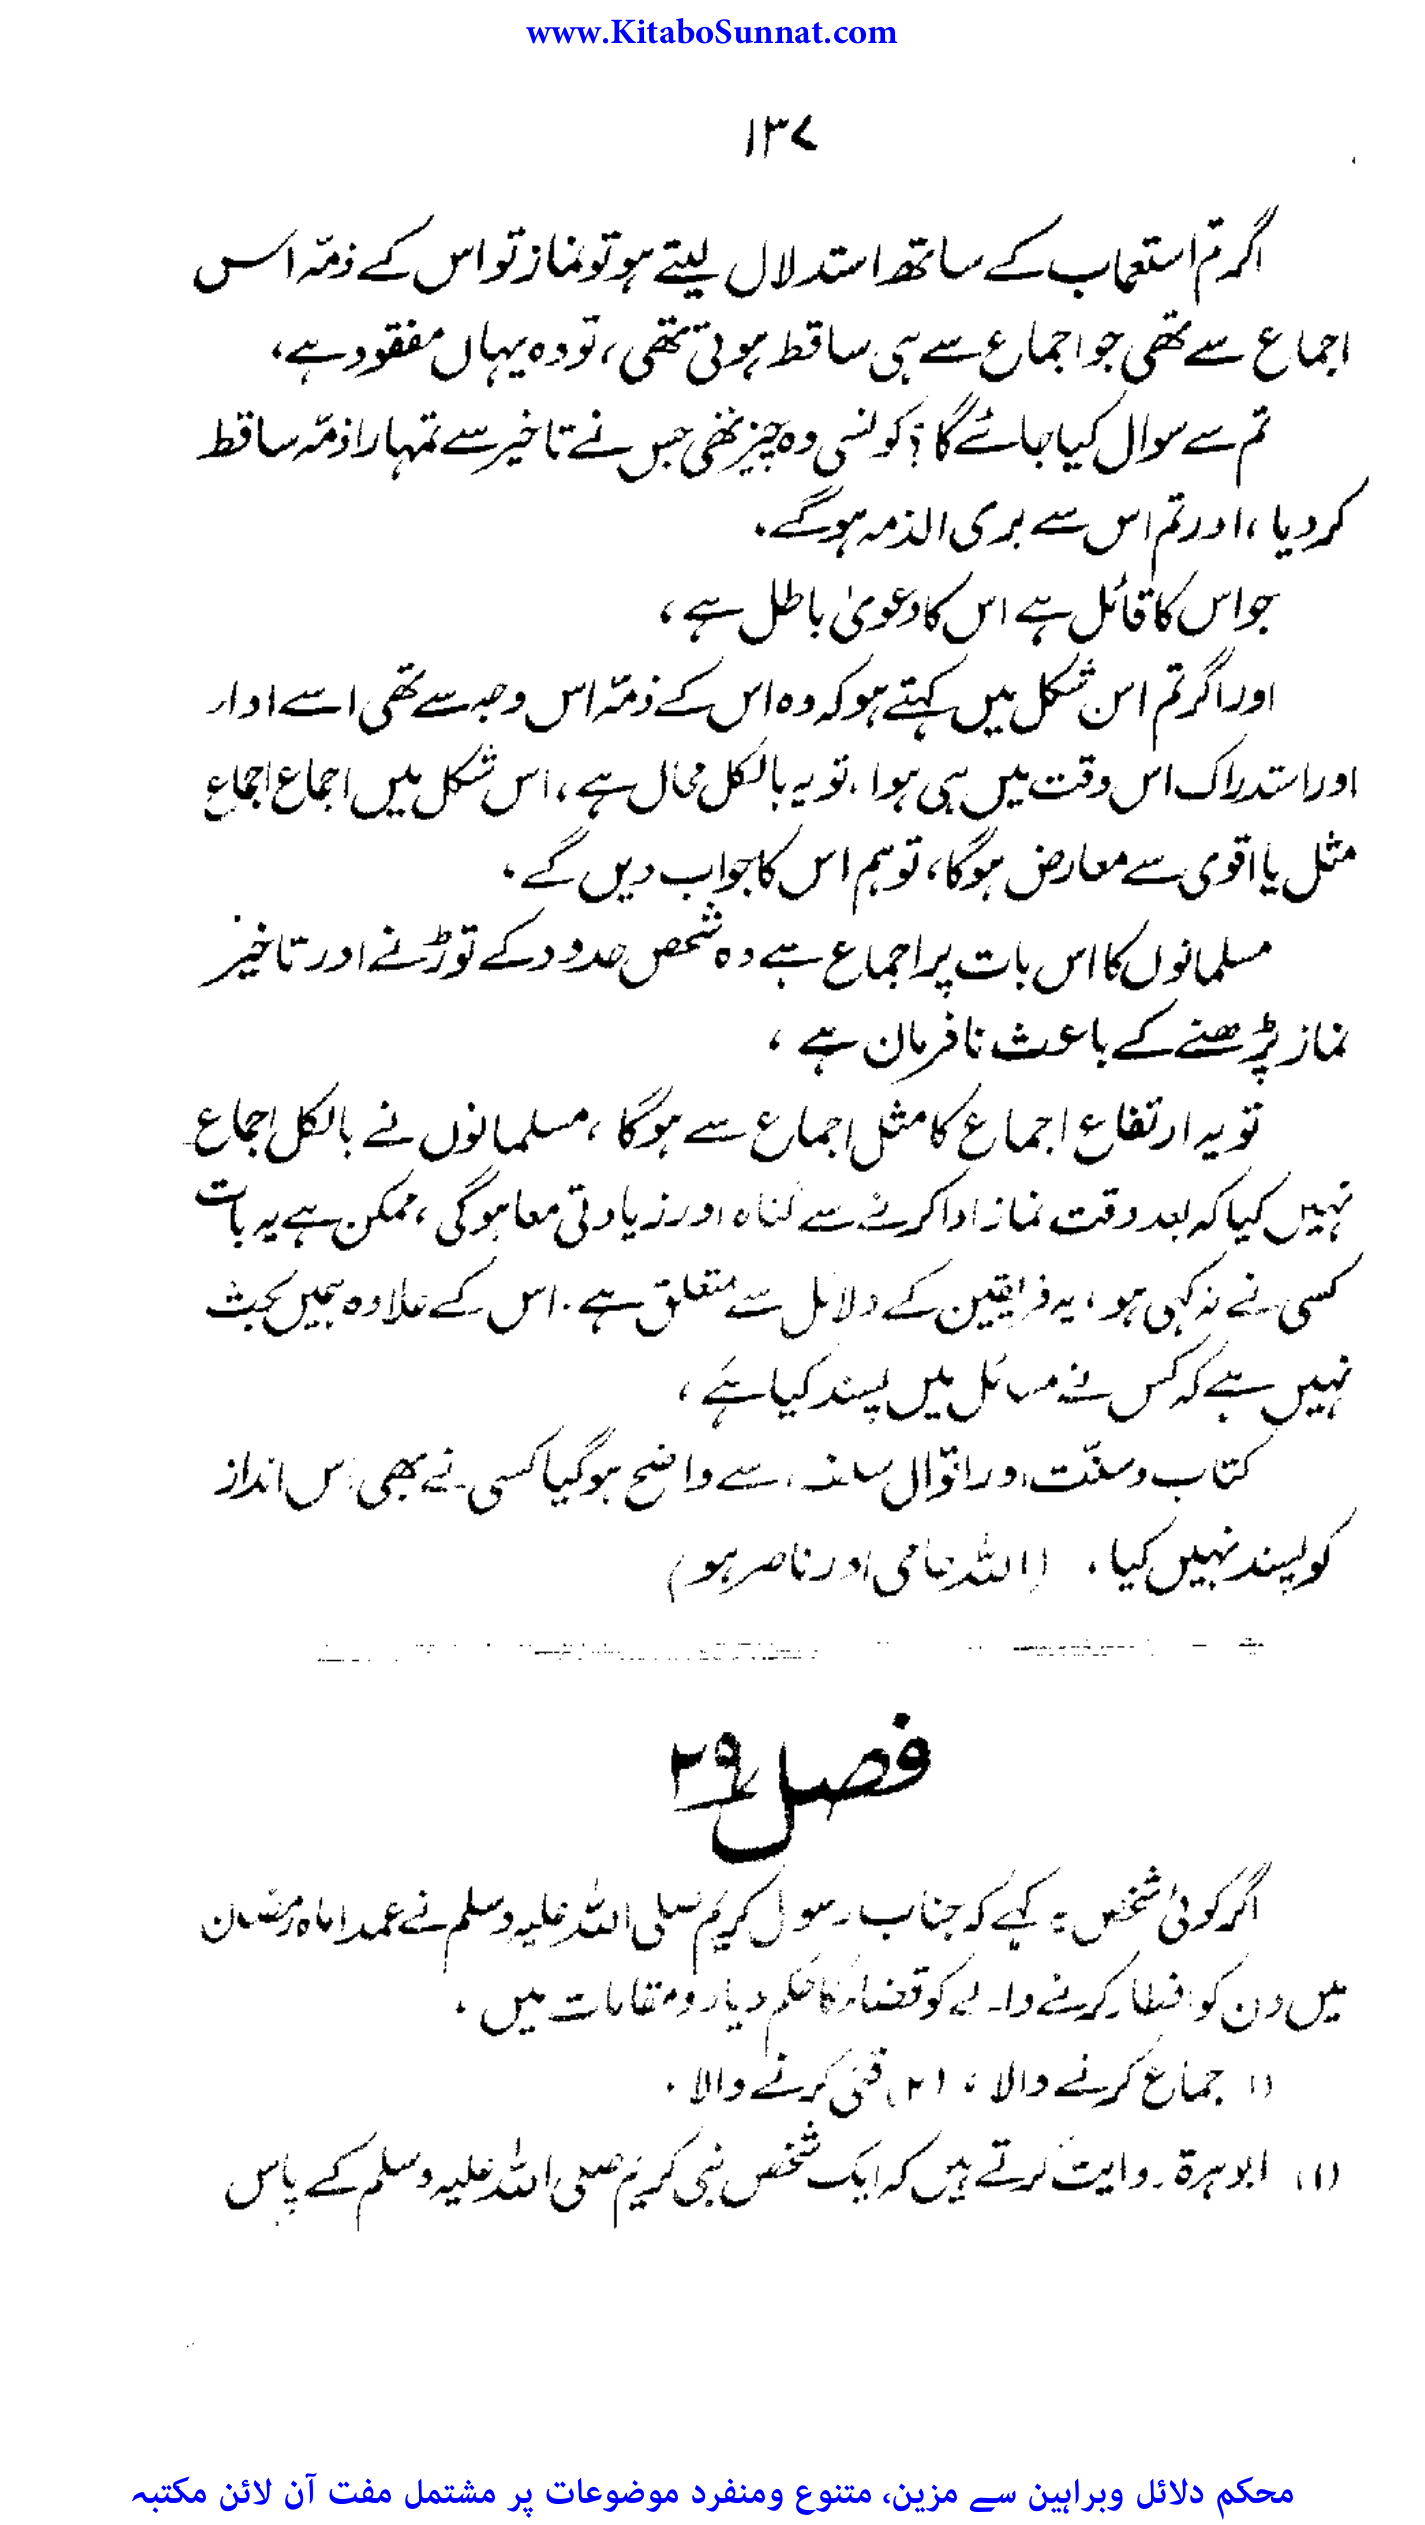 www.KitaboSunnat.com
۱۳۷
اگر تم استصحاب کے ساتھ استدلال لیتے ہو تو نماز تو اس کے ذمّہ اس
اجماع سے تھی جو اجماع سے ہی ساقط ہوتی تھی، تو وہ یہاں مفقود ہے،
تم سے سوال کیا جائے گا؟ کونسی وہ چیز تھی جس نے تاخیر سے تمہارا ذمّہ ساقط
کر دیا، اور تم اس سے بری الذمہ ہوگے۔
جو اس کا قائل ہے اس کا دعویٰ باطل ہے،
اور اگر تم اس شکل میں کہتے ہو کہ وہ اس کے ذمّہ اس وجہ سے تھی اسے ادار
اور استدراک اس وقت میں ہی ہوا، تو یہ بالکل محال ہے، اس شکل میں اجماع اجماع
مثل یا اقوی سے معارض ہوگا، تو ہم اس کا جواب دیں گے۔
مسلمانوں کا اس بات پر اجماع ہے وہ شخص حدود کے توڑنے اور تاخیر
نماز پڑھنے کے باعث نافرمان ہے،
تو یہ ارتفاع اجماع کا مثل اجماع سے ہوگا، مسلمانوں نے بالکل اجماع
نہیں کیا کہ بعد وقت نماز ادا کرنے سے گناہ اور زیادتی معا ہوگی، ممکن ہے یہ بات
کسی نے نہ کہی ہو، یہ فریقین کے دلائل سے متعلق ہے۔ اس کے علاوہ ہمیں بحث
نہیں ہے کہ کس نے مسائل میں پسند کیا ہے،
کتاب و سنّت اور اقوال سلف، سے واضح ہوگیا کسی نے بھی اس انداز
کو پسند نہیں کیا۔ (اللہ حامی اور ناصر ہو)
فصل ۲۹
اگر کوئی شخص یہ کہے کہ جناب رسول کریم صلی اللہ علیہ وسلم نے عمداً ماہ رمضان
میں دن کو افطار کرنے والے کو قضاء کا حکم دیا، دو مقامات میں۔
(۱) جماع کرنے والا، (۲) قئی کرنے والا۔
(۱) ابو ہرۃ روایت کرتے ہیں کہ ایک شخص نبی کریم صلی اللہ علیہ وسلم کے پاس
محکم دلائل وبراہین سے مزین، متنوع ومنفرد موضوعات پر مشتمل مفت آن لائن مکتبہ